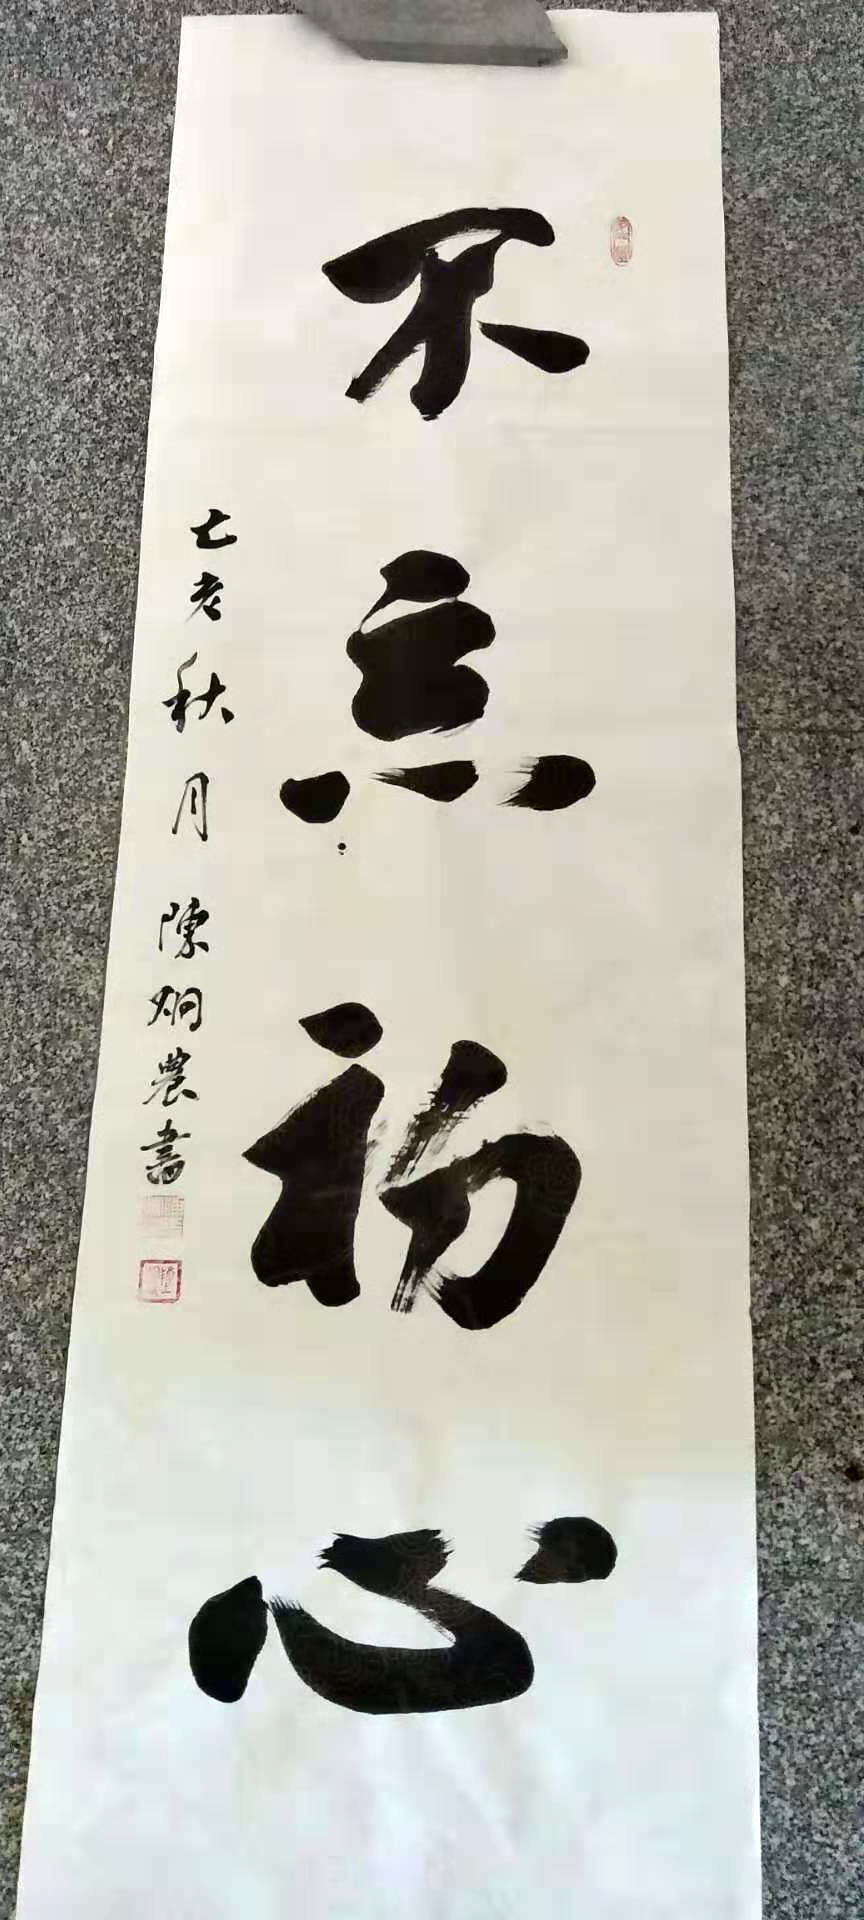 不忘初心
亡老秋月陳炯農書